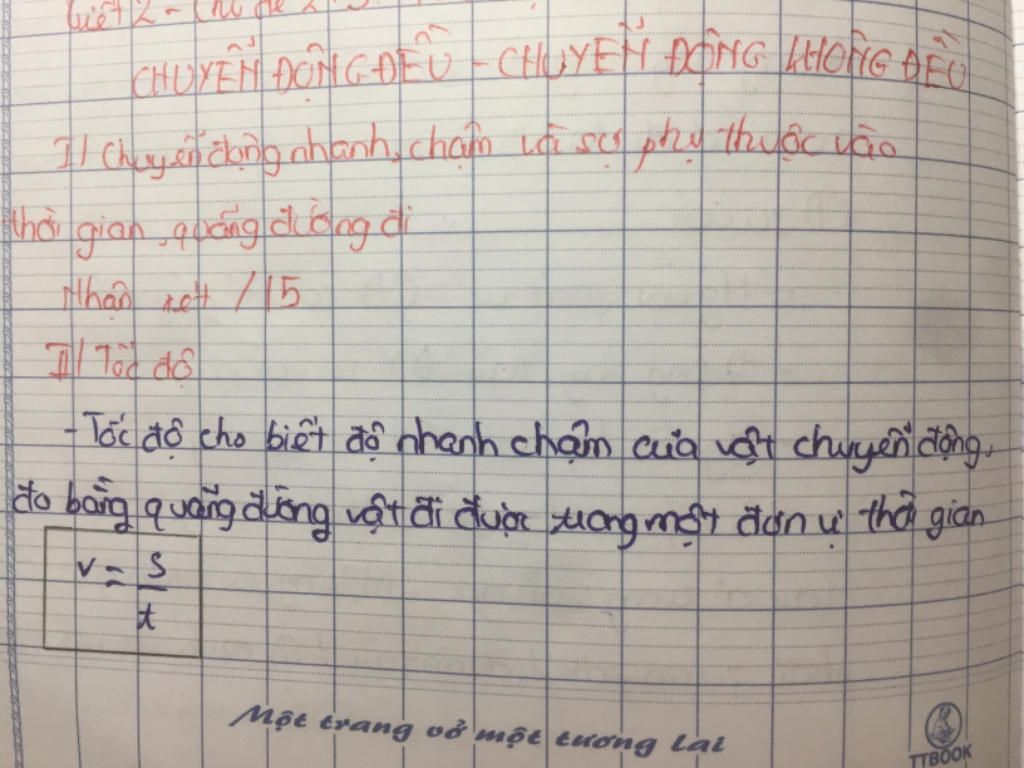 CHUYỂN ĐỘNG ĐỀU - CHUYỂN ĐỘNG KHÔNG ĐỀU
I/ Chuyển động nhanh, chậm và sự phụ thuộc vào
thời gian, quãng đường đi
Nhận xét /15
II/ Tốc độ
- Tốc độ cho biết độ nhanh chậm của vật chuyển động,
đo bằng quãng đường vật đi được trong một đơn vị thời gian
v = s/t
Một trang vở một tương lai
TTBOOK